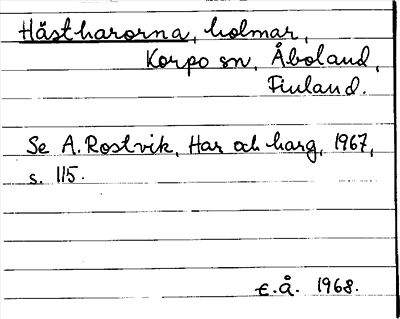 Hästharorna, holmar,
Korpo sn, Åboland,
Finland.
Se A. Rostvik, Har och harg, 1967,
s. 115.
t.å. 1968.